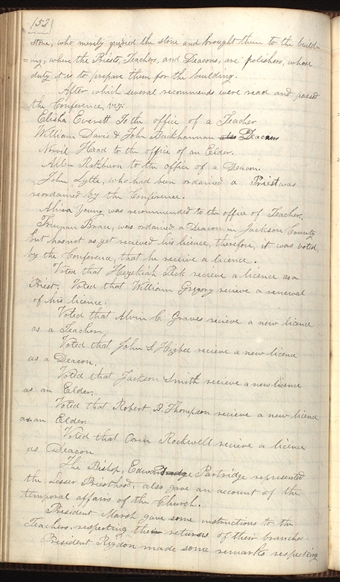 152
stone, who merely quaried the stone and brought them to the build-
=ing, where the Priests, Teachers, and Deacons, are polishers, whose
duty it is to prepare them for the building.
After which several recommends were read and passed
the Conference, viz:
Elisha Everett To the office of a Teacher
William Davis & John Deacons
Newil Head to the office of an Elder.
Allen Rathbun to the office of a Deacon
John Lytle, who had been ordained a Priest was
reordained by the Conference.
Alvin Young, was recommended to the office of Teacher.
Truman Brace, was ordained a Deacon in Jackson County
but has not as yet received his licence, therefore, it was voted,
by the Conference, that he receive a licence.
Voted that Hezekiah Peck recieve a licence as a
Priest. Voted that William Gregory recieve a renewal
of his licence.
Voted that Alvin C. Graves recieve a new licence
as a Teacher,
Voted that John S. Higbee recieve a new licence
as a Deacon,
Voted that Jackson Smith recieve a new licence
as an Elder.
Voted that Robert B. Thompson recieve a new licence
as an Elder
Voted that Orrin Rockwell recieve a licence
as Deacon
The Bishop, Edward Partridge represented
the lesser Priesthood, also gave an account of the
temporal affairs of the Church.
President Marsh gave some instructions to the
Teachers, respecting their returns of their branches
President Rigdon made some remarks respecting